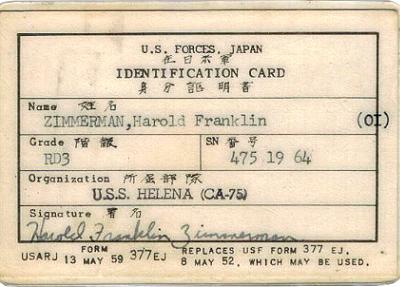 U.S. FORCES, JAPAN
在日米軍
IDENTIFICATION CARD
身分証明書
Name 姓名
ZIMMERMAN,Harold Franklin (OI)
Grade 階級 SN 番号
RD3 475 19 64
Organization 所屈部隊
U.S.S. HELENA (CA-75)
Signature 署名
Harold Franklin Zimmerman
USARJ FORM 13 MAY 59 377EJ REPLACES USF FORM 377 EJ.
8 MAY 52. WHICH MAY BE USED.